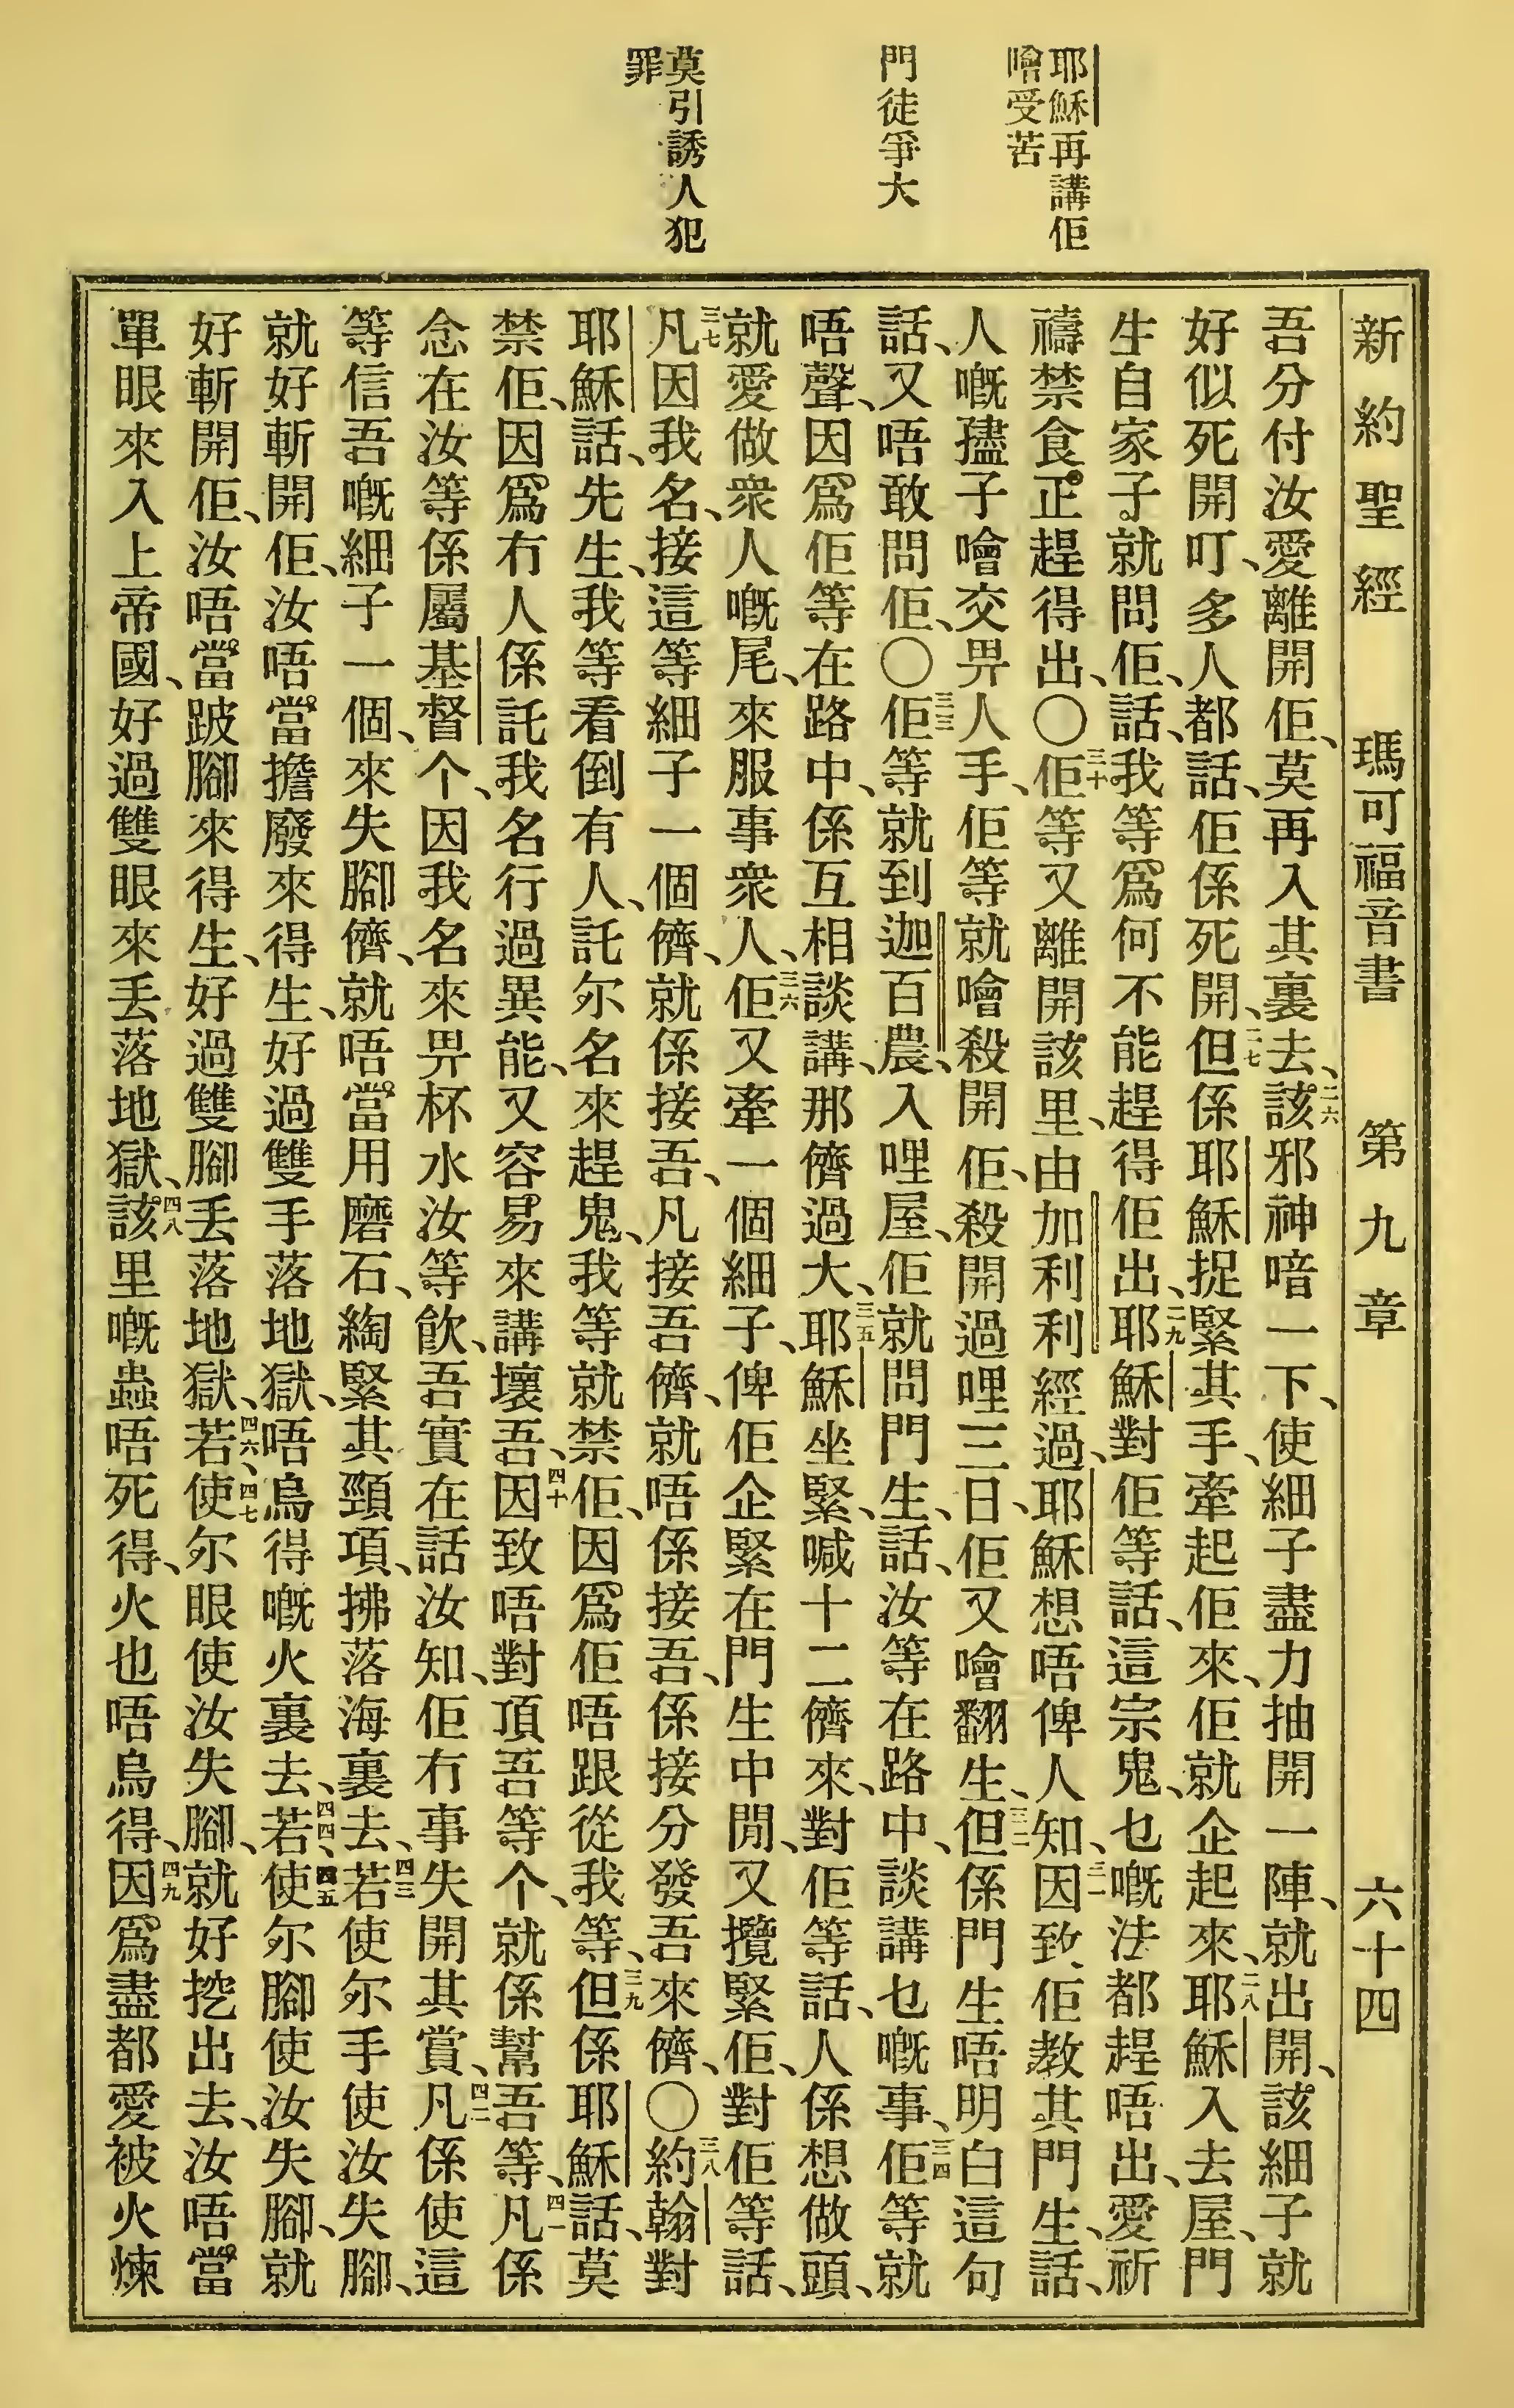 耶穌再講佢
噲受苦
門徒爭大
莫引誘人犯
罪
新約聖經 瑪可福音書 第九章 六十四
吾分付汝愛離開佢、莫再入其裏去、二六該邪神喑一下、使細子盡力抽開一陣、就出開、該細子就
好似死開叮、多人都話、佢係死開、二七但係耶穌捉緊其手、牽起佢來、佢就企起來、二八耶穌入去屋、門
生自家子就問佢、話、我等爲何不能趕得佢出、二九耶穌對佢等話、這宗鬼、乜嘅法都趕唔出、愛祈
禱禁食正趕得出、〇三十佢等又離開該里、由加利利經過、耶穌想唔俾人知、三一因致、佢教其門生、話、
人嘅𡥧子噲交畀人手、佢等就噲殺開佢、殺開過哩三日、佢又噲翻生、三二但係門生唔明白這句
話、又唔敢問佢、〇三三佢等就到迦百農、入哩屋、佢就問門生、話、汝等在路中、談講乜嘅事、三四佢等就
唔聲、因爲佢等在路中、係互相談講、那儕過大、三五耶穌坐緊、喊十二儕來、對佢等話、人係想做頭、
就愛做衆人嘅尾、來服事衆人、三六佢又牽一個細子、俾佢企緊在門生中間、又攬緊佢、對佢等話、
三七凡因我名、接這等細子一個儕、就係接吾、凡接吾儕、就唔係接吾、係接分發吾來儕、〇三八約翰對
耶穌話、先生、我等看倒有人、託尔名來趕鬼、我等就禁佢、因爲佢唔跟從我等、三九但係耶穌話、莫
禁佢、因爲冇人係託我名行過異能、又容易來講壞吾、四十因致唔對頂吾等个、就係幫吾等、四一凡係
念在汝等係屬基督个、因我名來畀杯水汝等飲、吾實在話汝知、佢冇事失開其賞、四二凡係使這
等信吾嘅細子一個、來失腳儕、就唔當用磨石、綯緊其頸項、拂落海裏去、四三若使尔手使汝失腳、
就好斬開佢、汝唔當擔廢來得生、好過雙手落地獄、唔烏得嘅火裏去、四四、四五若使尔腳使汝失腳、就
好斬開佢、汝唔當跛腳來得生、好過雙腳丢落地獄、四六、四七若使尔眼使汝失腳、就好挖出去、汝唔當
單眼來入上帝國、好過雙眼來丢落地獄、四八該里嘅蟲唔死得、火也唔烏得、四九因爲盡都愛被火煉